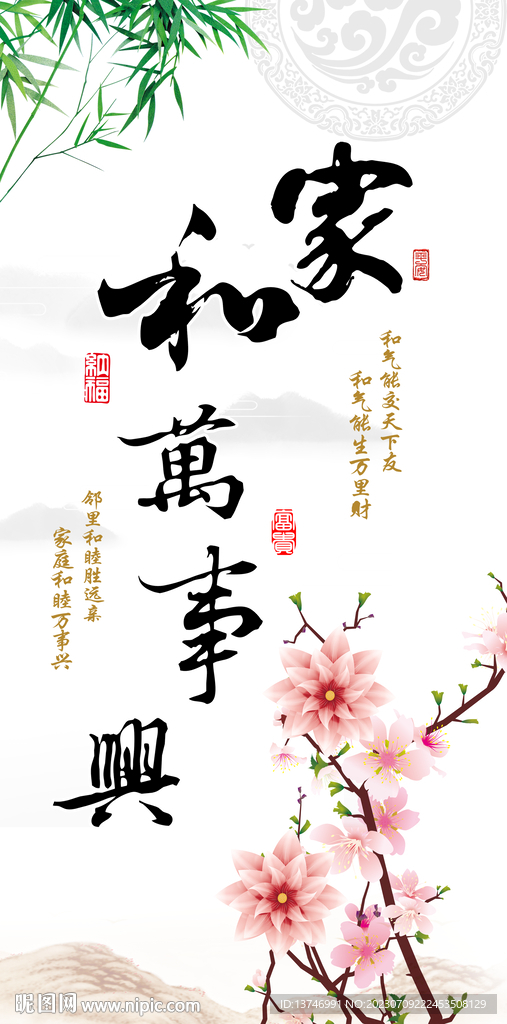 家和萬事興
和气能交天下友
和气能生万里财
納福
富貴
邻里和睦胜远亲
家庭和睦万事兴
昵图网 www.nipic.com
ID:13746991 NO:20230709222453508129